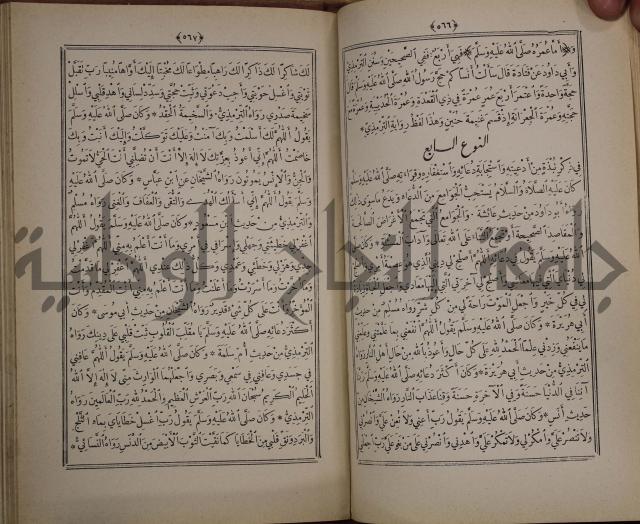 ﴿٥٦٦﴾
و﴿أما عمره صلى الله عليه وسلم﴾ فهي أربع ففي الصحيحين وسنن الترمذي
وأبي داود عن قتادة قال سألت أنسا كم حج رسول الله صلى الله عليه وسلم قال
حجة واحدة واعتمر أربع عمر عمرة في ذي القعدة وعمرة الحديبية وعمرة مع
حجته وعمرة الجعرانة إذ قسم غنيمة حنين وهذا لفظ رواية الترمذي
النوع السابع
في ذكر نبذة من أدعيته واستجابة دعائه واستغفاره وقراءته صلى الله عليه وسلم
كان عليه الصلاة والسلام يستحب الجوامع من الدعاء ويدع ما سوى ذلك
رواه أبو داود من حديث عائشة والجوامع التي تجمع الأغراض الصالحة
والمقاصد الصحيحة أو تجمع الثناء على الله تعالى وآداب المسألة وكان صلى
الله عليه وسلم يقول في دعائه اللهم أصلح لي ديني الذي
في كل خير واجعل الموت راحة لي من كل شر رواه مسلم من حديث
أبي هريرة وكان صلى الله عليه وسلم يقول اللهم انفعني بما علمتني وعلمني
ما ينفعني وزدني علما الحمد لله على كل حال وأعوذ بالله من حال أهل النار رواه
الترمذي من حديث أبي هريرة وكان أكثر دعائه صلى الله عليه وسلم ربنا
آتنا في الدنيا حسنة وفي الآخرة حسنة وقنا عذاب النار رواه الشيخان من
حديث أنس وكان صلى الله عليه وسلم يقول رب أعني ولا تعن علي وانصرني
ولا تنصر علي وامكر لي ولا تمكر علي واهدني وانصرني على من بغى علي رب اجعلني
﴿٥٦٧﴾
لك شاكرا لك ذاكرا لك راهبا مطواعا لك مخبتا إليك أواها منيبا رب تقبل
توبتي واغسل حوبتي وأجب دعوتي وثبت حجتي وسدد لساني واهد قلبي واسلل
سخيمة صدري رواه الترمذي والسخيمة الحقد وكان صلى الله عليه وسلم
يقول اللهم لك أسلمت وبك آمنت وعليك توكلت وإليك أنبت وبك
خاصمت اللهم إني أعوذ بعزتك لا إله إلا أنت أن تضلني أنت الحي لا تموت
والجن والإنس يموتون رواه الشيخان عن ابن عباس وكان صلى الله عليه
وسلم يقول اللهم إني أسألك الهدى والتقى والعفاف والغنى رواه مسلم
والترمذي من حديث ابن مسعود وكان صلى الله عليه وسلم يقول اللهم
اغفر لي خطيئتي وجهلي وإسرافي في أمري وما أنت أعلم به مني اللهم اغفر لي
جدي وهزلي وخطئي وعمدي وكل ذلك عندي اللهم اغفر لي ما قدمت
وما أخرت وما أسررت وما أعلنت وما أنت أعلم به مني أنت المقدم وأنت
المؤخر وأنت على كل شيء قدير رواه الشيخان من حديث أبي موسى وكان
أكثر دعائه صلى الله عليه وسلم يا مقلب القلوب ثبت قلبي على دينك رواه
الترمذي من حديث أم سلمة وكان صلى الله عليه وسلم يقول اللهم عافني
في جسدي وعافني في سمعي وبصري واجعلهما الوارث مني لا إله إلا الله
الحليم الكريم سبحان الله رب العرش العظيم والحمد لله رب العالمين رواه
الترمذي وكان صلى الله عليه وسلم يقول رب اغسل خطاياي بماء الثلج
والبرد ونق قلبي من الخطايا كما نقيت الثوب الأبيض من الدنس رواه النسائي
جامعة النجاح الوطنية